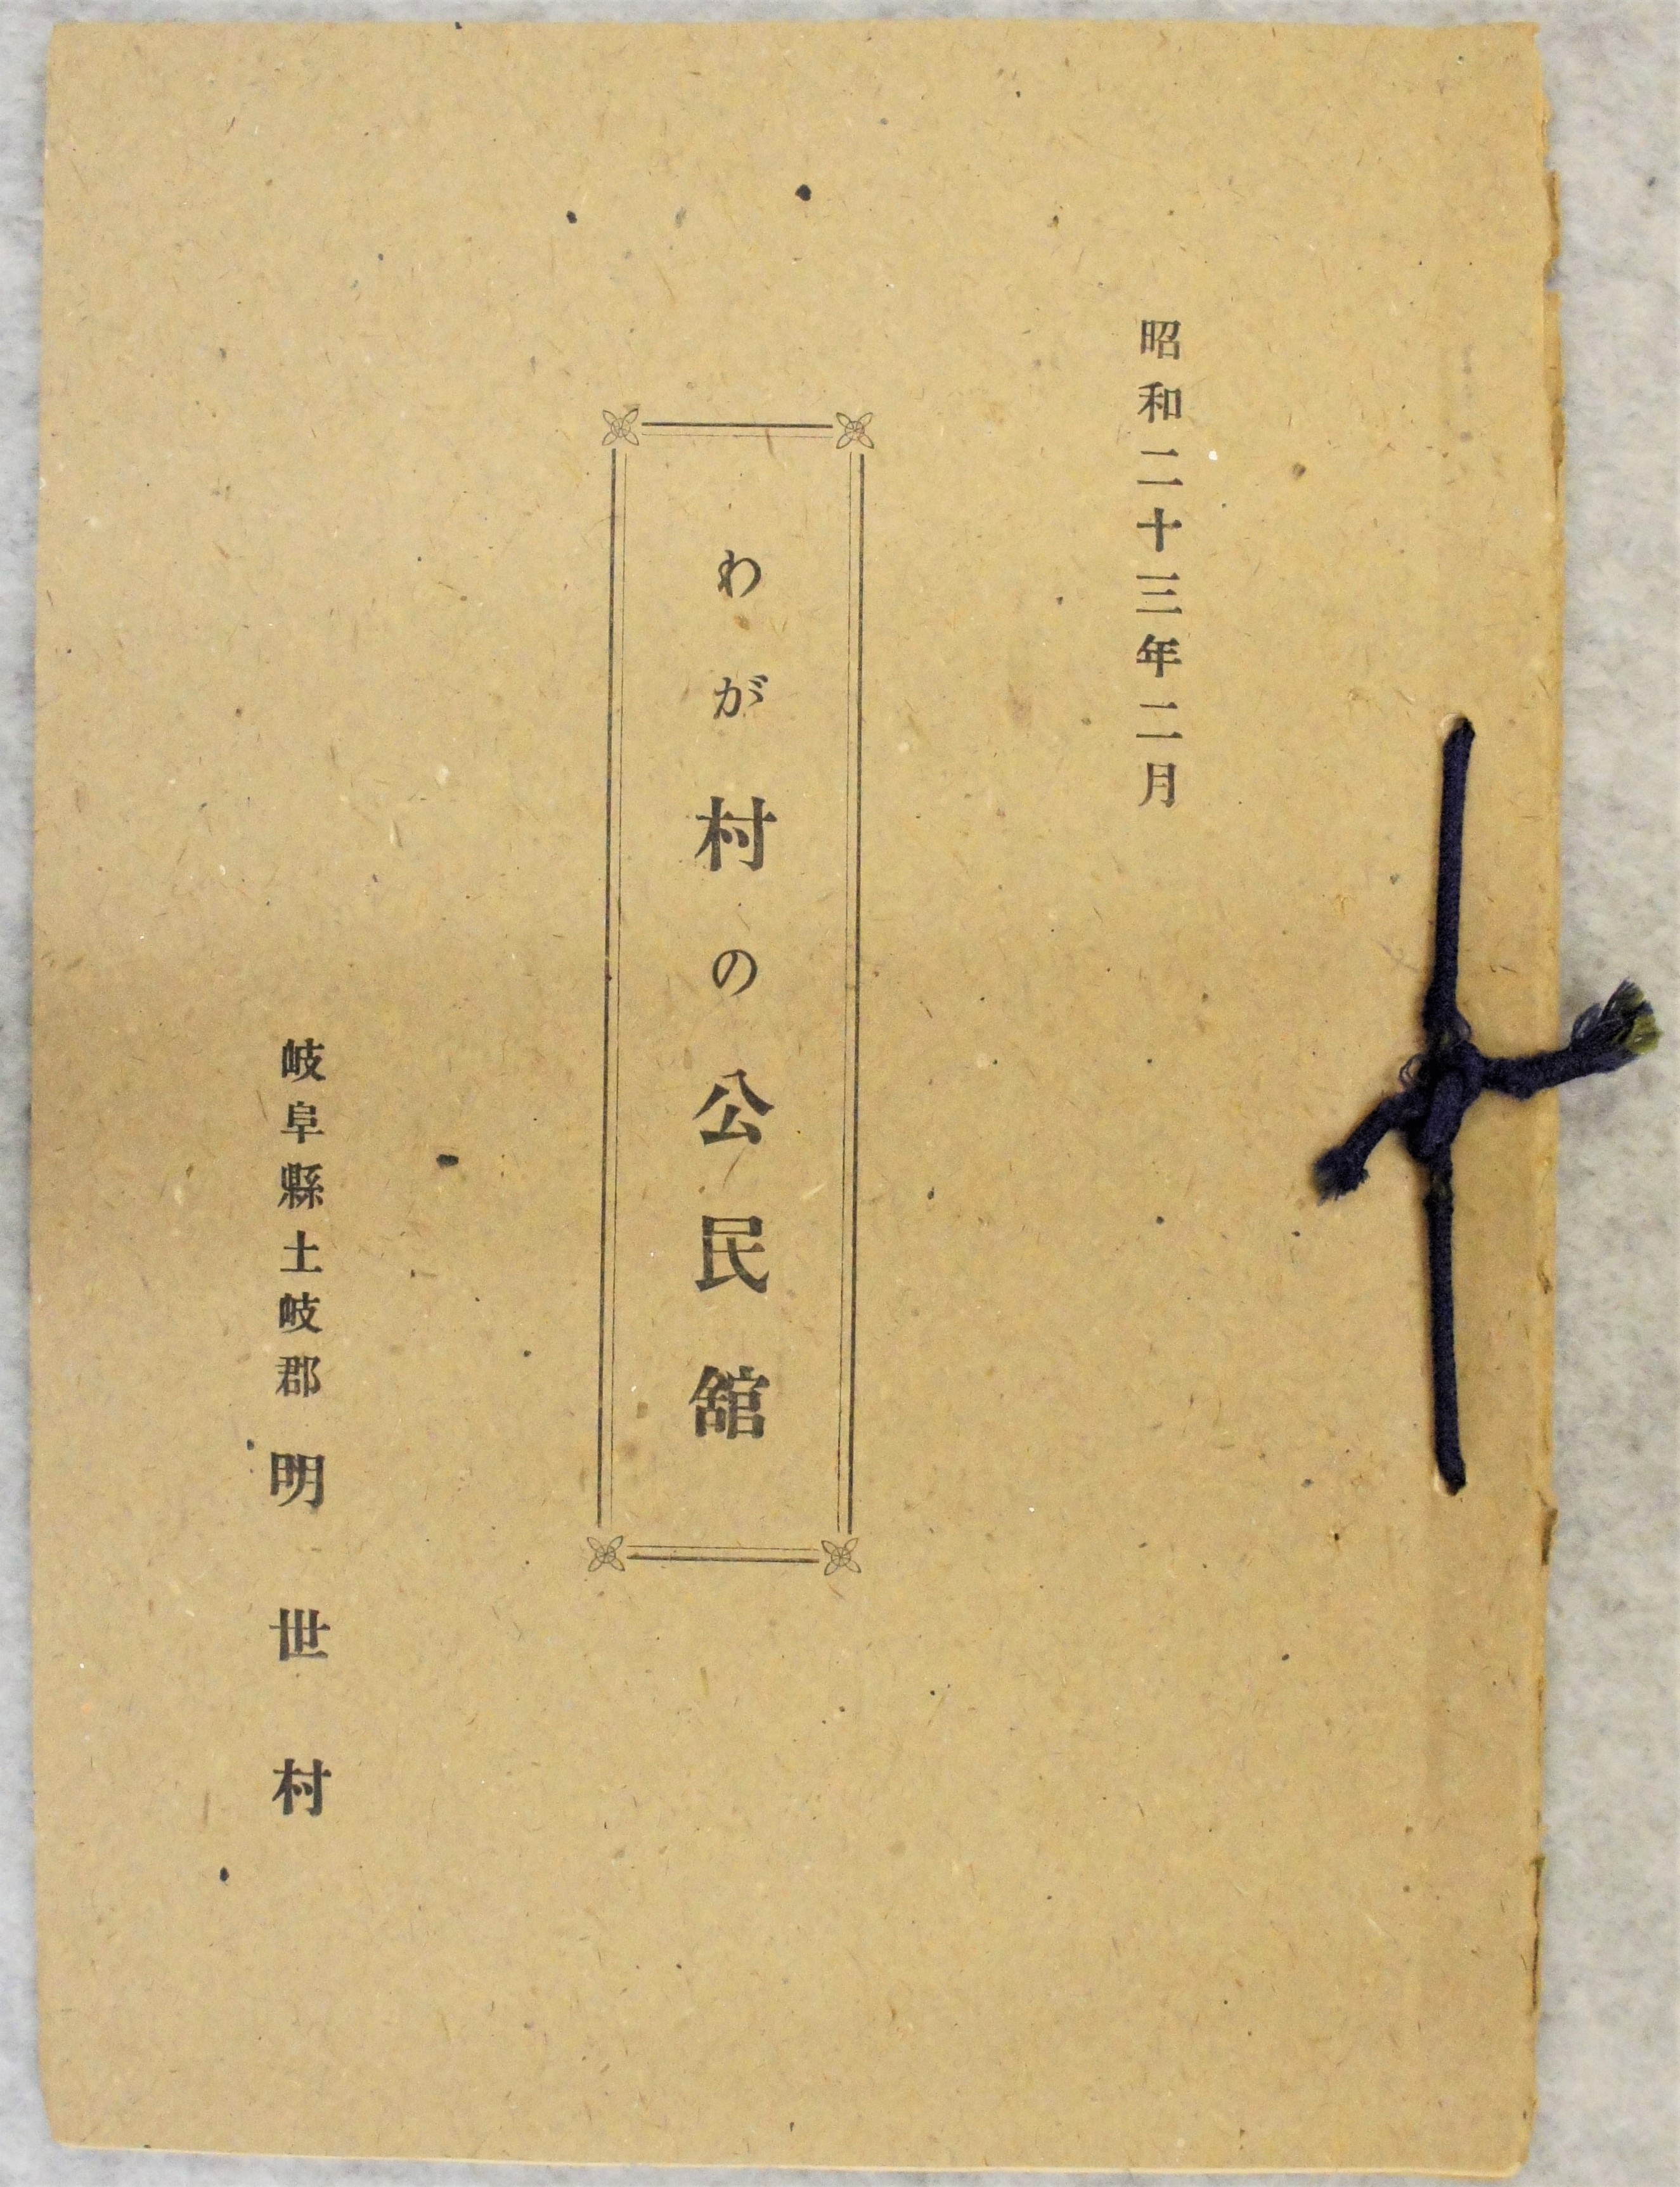 昭和二十三年二月
わが村の公民舘
岐阜縣土岐郡明世村